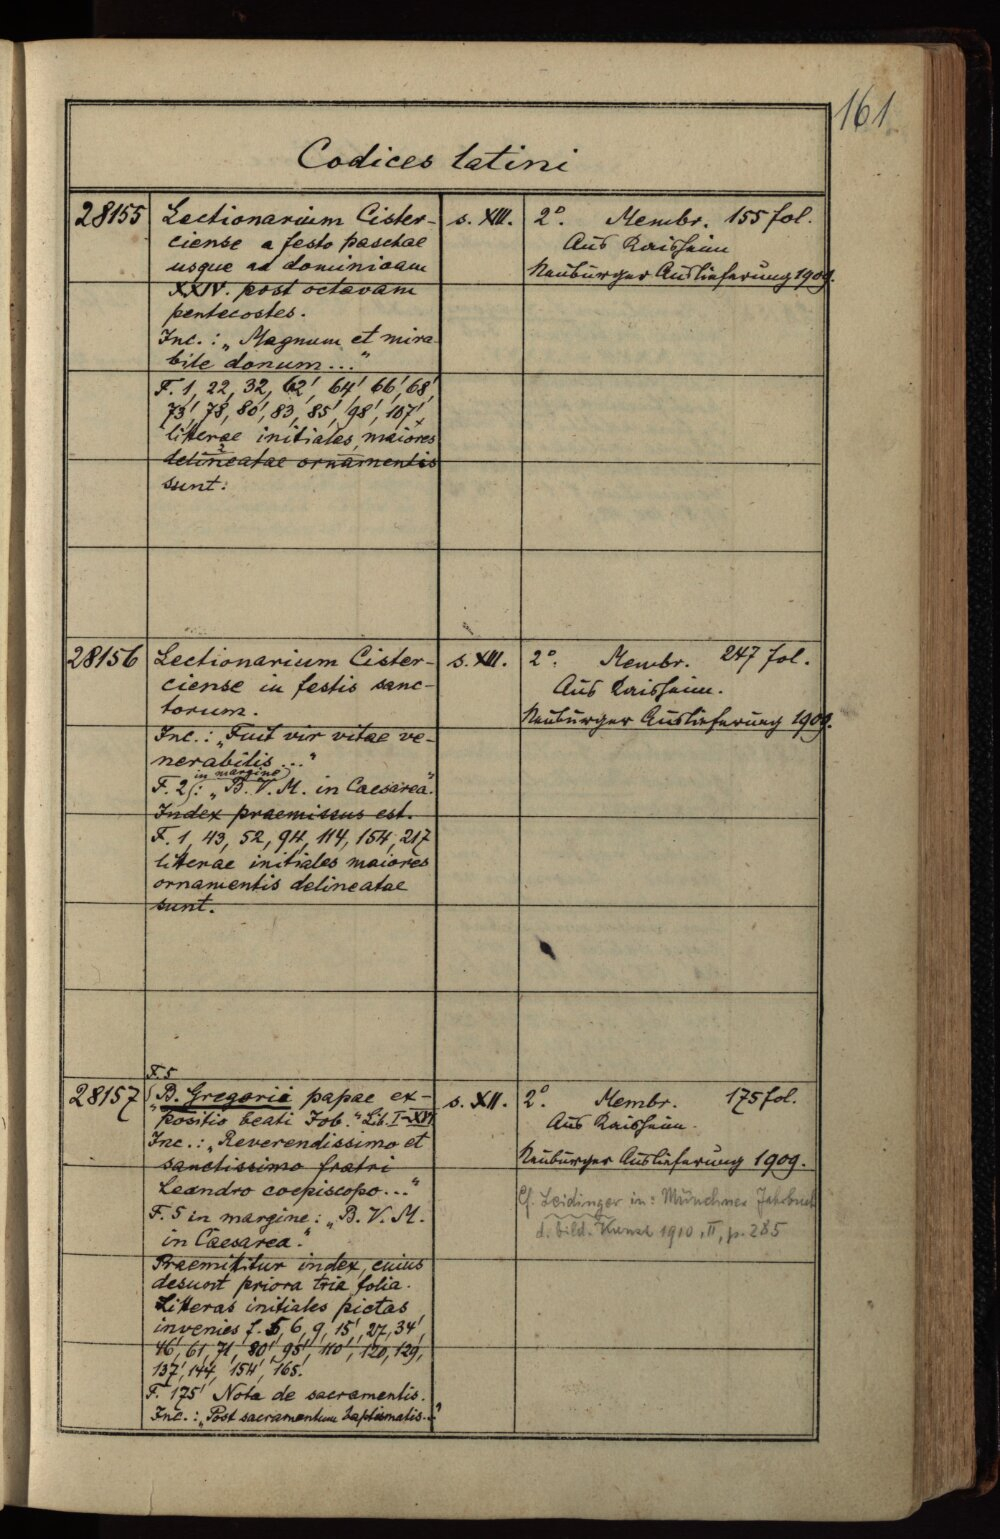 161
Codices latini
28155
Lectionarium Cister-
ciense a festo paschae
usque ad dominicam
XXIV. post octavam
pentecostes.
Inc.: „Magnum et mira-
bile donum..."
F. 1, 22, 32, 62', 64', 66', 68',
73', 78, 80', 83, 85', 98', 107',
litterae initiales maiores
delineatae ornamentis
sunt.
s. XIII.
2°. Membr. 155 fol.
Aus Kaisheim
Neuburger Auslieferung 1909.
28156
Lectionarium Cister-
ciense in festis sanc-
torum.
Inc.: „Fuit vir vitae ve-
nerabilis..."
in margine
F. 2: „B. V. M. in Caesarea."
Index praemissus est.
F. 1, 43, 52, 94, 114, 154, 217
litterae initiales maiores
ornamentis delineatae
sunt.
s. XIII.
2°. Membr. 247 fol.
Aus Kaisheim.
Neuburger Auslieferung 1909.
28157
F. 5
„B. Gregorii papae ex-
positio beati Job." Lib. I-XVI
Inc.: „Reverendissimo et
sanctissimo fratri
Leandro coepiscopo..."
F. 5 in margine: „B. V. M.
in Caesarea."
Praemittitur index, cuius
desunt priora tria folia.
Litteras initiales pictas
invenies f. 5, 6, 9, 15', 27, 34'
46', 61, 71, 80', 95', 110', 120, 129,
137', 144, 154', 165'.
F. 175' Nota de sacramentis.
Inc.: „Post sacramentum baptismatis..."
s. XII.
2°. Membr. 175 fol.
Aus Kaisheim.
Neuburger Auslieferung 1909.
Cf. Leidinger in: Münchner Jahrbuch
d. bild. Kunst 1910, II, p. 285